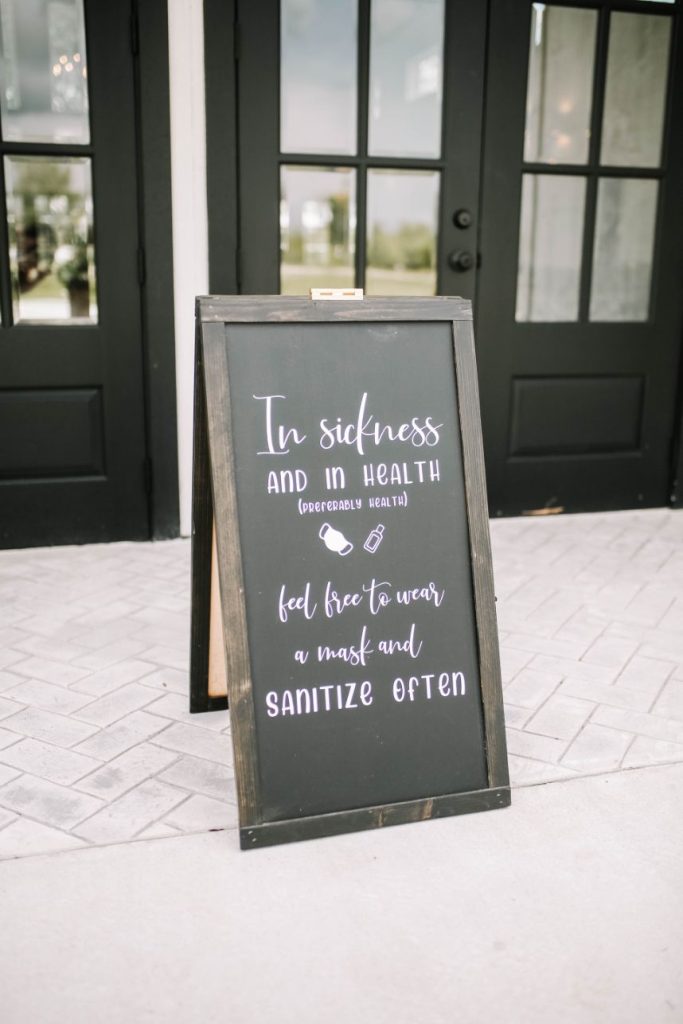 In sickness
AND IN HEALTH
(PREFERABLY HEALTH)
feel free to wear
a mask and
SANITIZE OFTEN